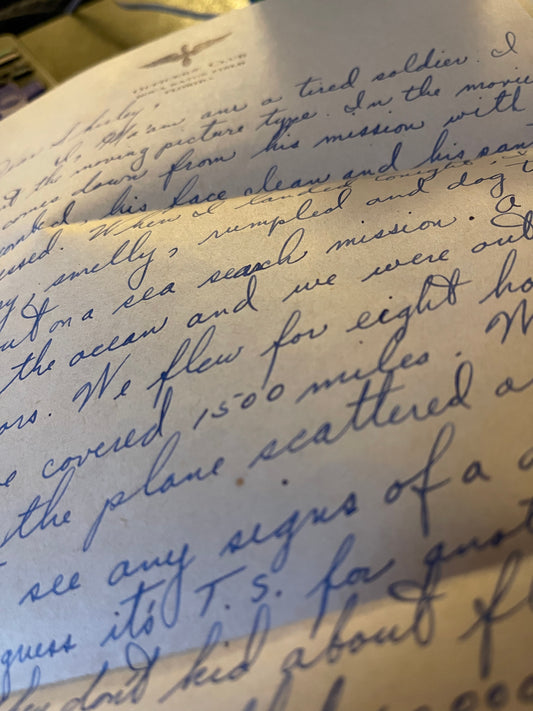 OFFICERS CLUB
BOCA RATON FIELD
FLORIDA
Dear Shirley,
I, Ma'am am a tired soldier. I
t the moving picture type. In the movie
omes down from his mission with
ombed, his face clean and his
ssed. When I landed tonight
y, smelly, rumpled and dog
out on a sea search mission. A
the ocean and we were out
ors. We flew for eight ho
e covered 1500 miles. W
the plane scattered a
see any signs of a
guess it's T. S. for anot
hey don't kid about fl